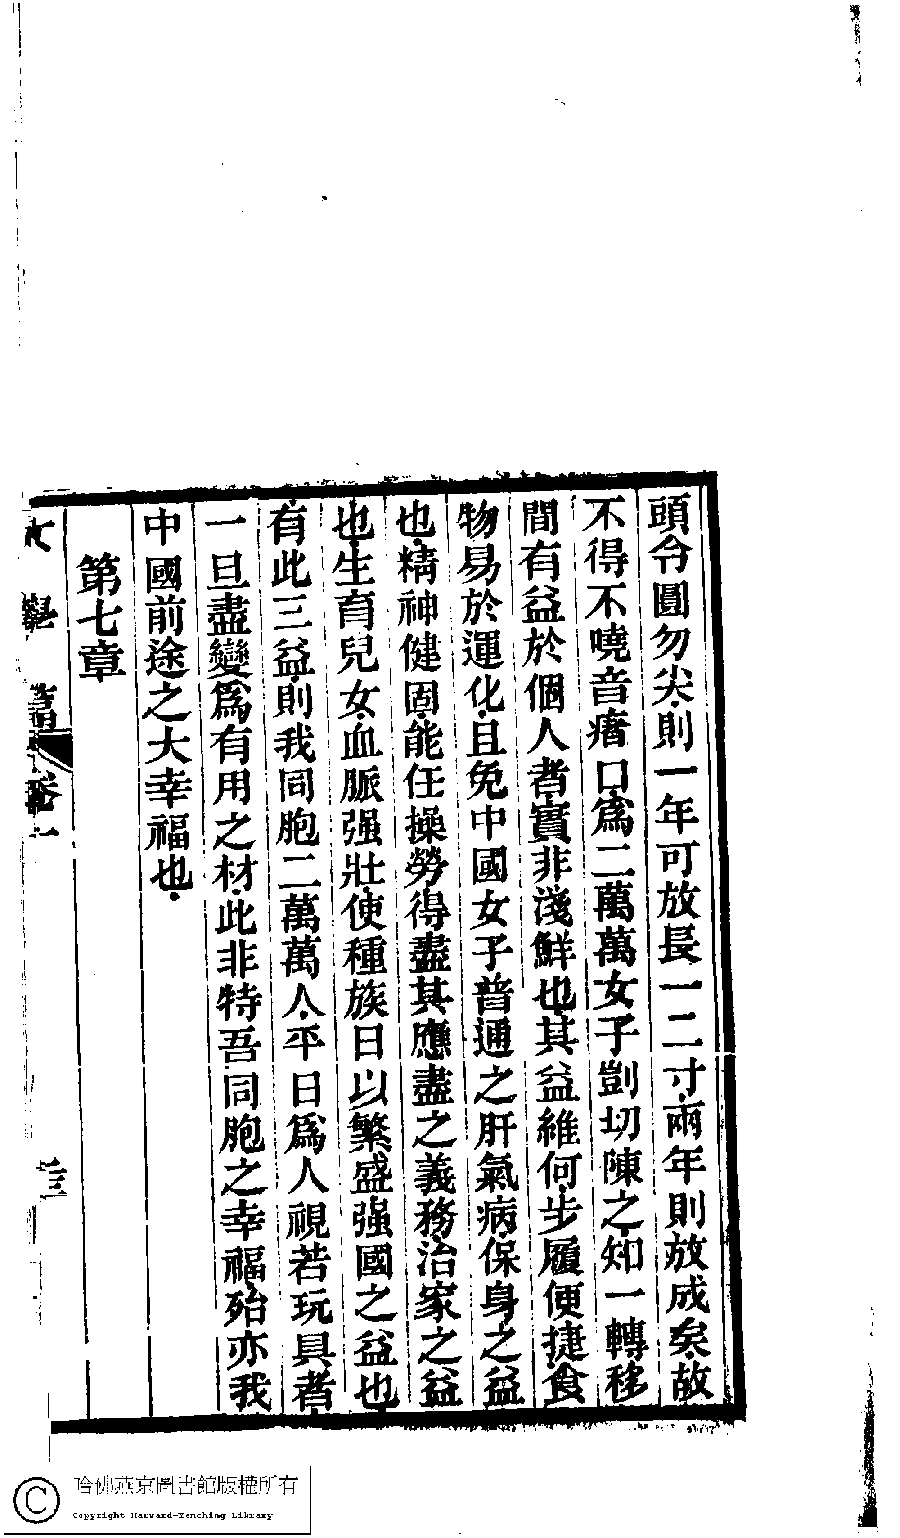 頭令圓勿尖則一年可放長一二寸兩年則放成矣故
不得不嘵音瘏口爲二萬萬女子剴切陳之知一轉移
間有益於個人者實非淺鮮也其益維何步履便捷食
物易於運化且免中國女子普通之肝氣病保身之益
也精神健固能任操勞得盡其應盡之義務治家之益
也生育兒女血脈强壯使種族日以繁盛强國之益也
有此三益則我同胞二萬萬人平日爲人視若玩具者
一旦盡變爲有用之材此非特吾同胞之幸福殆亦我
中國前途之大幸福也
第七章
哈佛燕京圖書館版權所有
Copyright Harvard-Yenching Library